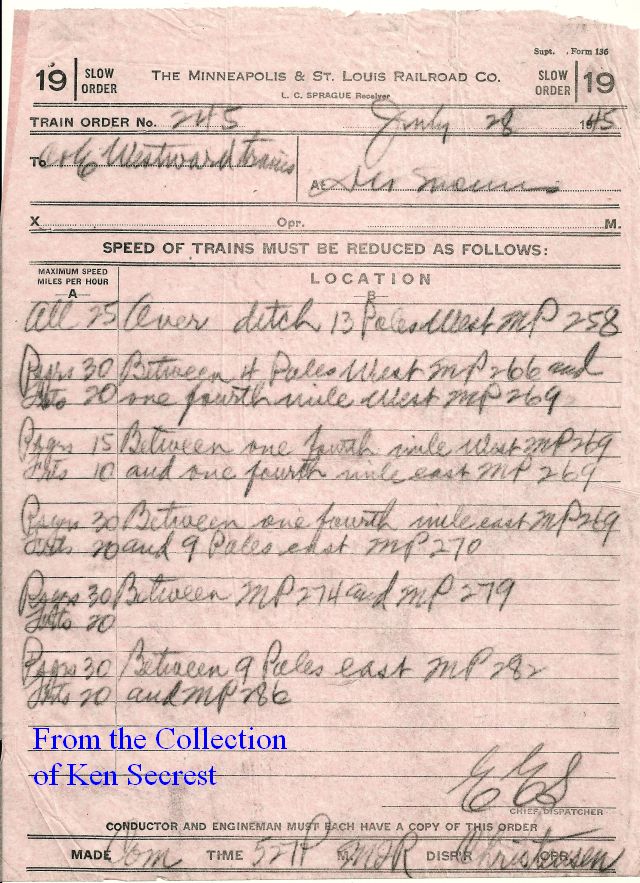 Supt. Form 136
19 SLOW ORDER THE MINNEAPOLIS & ST. LOUIS RAILROAD CO. SLOW ORDER 19
L. C. SPRAGUE Receiver
TRAIN ORDER No. 245 July 28 1945
To C&E Westward Trains
At Des Moines
X Opr. M.
SPEED OF TRAINS MUST BE REDUCED AS FOLLOWS:
MAXIMUM SPEED MILES PER HOUR LOCATION
A B
All 25 Over ditch 13 Poles West MP 258
Psgrs 30 Between 4 Poles West MP 266 and
Frts 20 one fourth mile West MP 269
Psgrs 15 Between one fourth mile West MP 269
Frts 10 and one fourth mile east MP 269
Psgrs 30 Between one fourth mile east MP 269
Frts 20 and 9 Poles east MP 270
Psgrs 30 Between MP 274 and MP 279
Frts 20
Psgrs 30 Between 9 Poles east MP 282
Frts 20 and MP 286
From the Collection
of Ken Secrest
CHIEF DISPATCHER
CONDUCTOR AND ENGINEMAN MUST EACH HAVE A COPY OF THIS ORDER
MADE Com TIME M. DISP'R Christensen OPR.